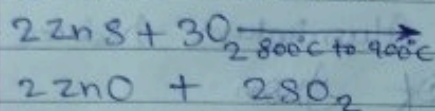 2ZnS + 3O₂ ⟶ 800°C to 900°C
2ZnO + 2SO₂